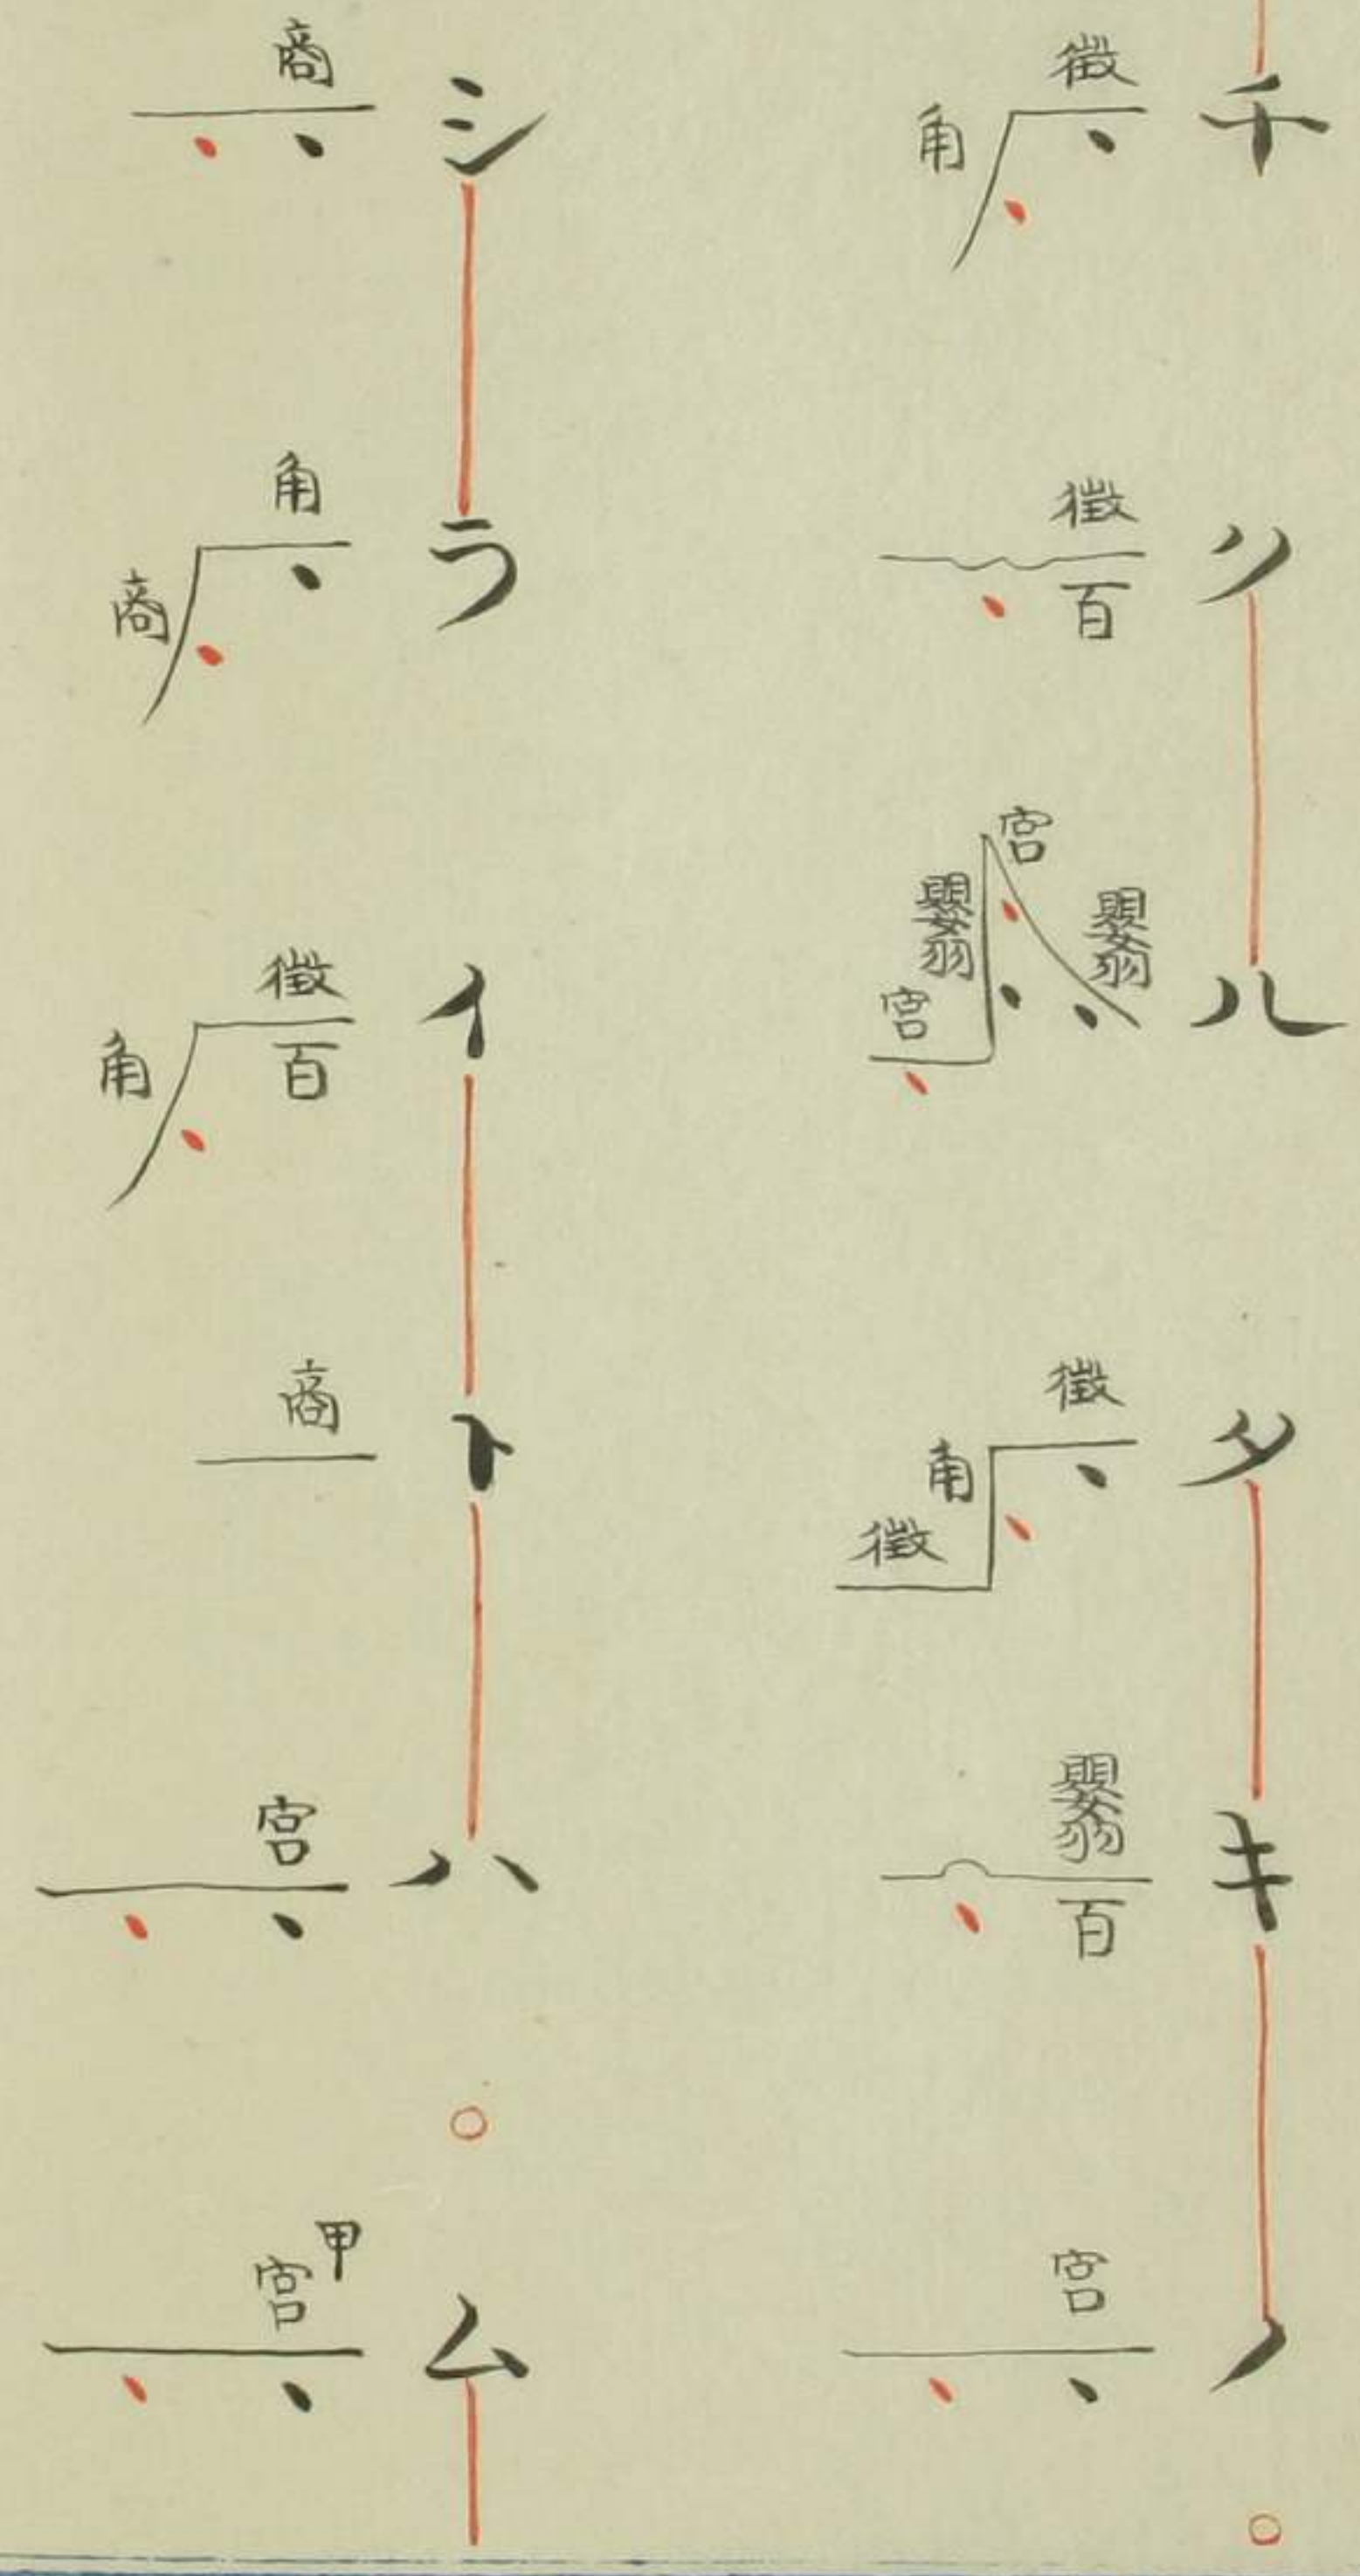 チ 徴 角
ツ 徴 百
ル 嬰羽 宮 嬰羽 宮
タ 徴 角 徴
キ 嬰羽 百
ノ 宮
シ 商
ラ 角 商
イ 徴 百 角
ト 商
ハ 宮
ム 甲 宮